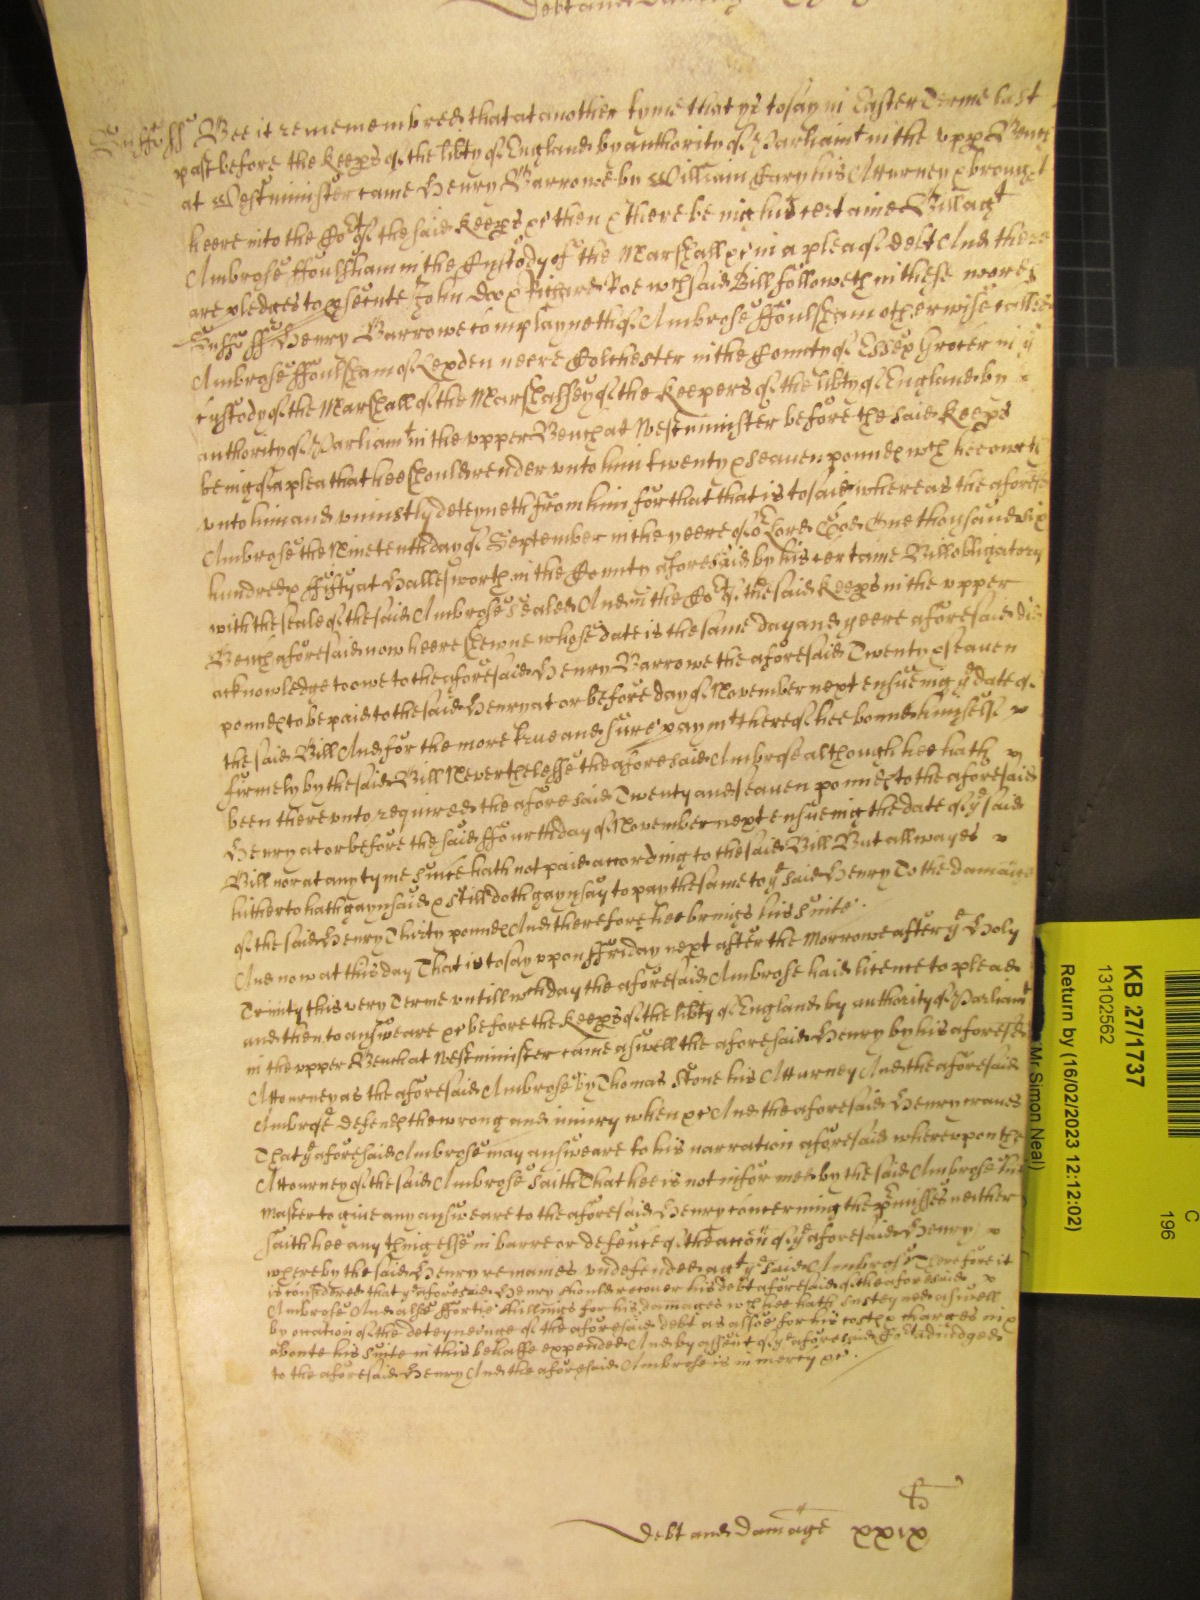 Debt and Damage
Suff ss Bee it rememembred that at another tyme that ys to say in Easter Terme last
past before the Keeps of the libty of England by authority of Parliamt in the vpp Bench
at Westminister came Henry Barrowe by William Gary his Atturney & brought
heere into the Cot of the said Keeps &c then & there being his certaine Bill agt
Ambrose ffoulsham in the Custody of the Marshall &c in a plea of debt And there
are pledges to psecute John Doo & Richard Roe wch said Bill followeth in these wordes
Suff ss Henry Barrowe complayneth of Ambrose ffoulsham otherwise called
Ambrose ffoulsham of Lexden neere Colchester in the County of Essex Grocer in ye
custody of the Marshall of the Marshalsey of the Keepers of the libty of England by
authority of Parliamt in the vpper Bench at Westminister before the said Keeps
being of a plea that hee should render vnto him twenty & seauen poundes wch hee oweth
vnto him and vniustly deteyneth from him for that that is to saie whereas the aforesd
Ambrose the Nineteenth day of September in the yeere of or Lord God One thousand six
hundred & ffifty at Hallesworth in the County aforesaid by his certaine Bill obligatory
with the seale of the said Ambrose sealed And in the Cot of the said Keeps in the vpper
Bench aforesaid now heere shewne whose date is the same day and yeere aforesaid did
acknowledge to owe to the aforesaid Henry Barrowe the aforesaid Twenty & seauen
poundes to be paid to the said Henry at or before day of November next ensueing ye date of
the said Bill And for the more true and sure paymt thereof hee bound himselfe
firmely by the said Bill Neverthelesse the aforesaid Ambrose although hee hath
been therevnto required the aforesaid Twenty and seauen poundes to the aforesaid
Henry at or before the said ffourth day of November next ensueing the date of ye said
Bill nor at any tyme since hath not paid according to the said Bill But allwayes
hitherto hath gaynsaid & still doth gaynsay to pay the same to ye said Henry To the damage
of the said Henry Thirty poundes And therefore hee brings his suite
And now at this day That is to say vpon ffriday next after the Morrowe after ye Holy
Trinity this very Terme vntill wch day the aforesaid Ambrose had licence to plead
and then to answeare &c before the Keeps of the libty of England by authority of Parliamt
in the vpper Bench at Westminister came aswell the aforesaid Henry by his aforesd
Attourney as the aforesaid Ambrose by Thomas Stone his Atturney And the aforesaid
Ambrose defendes the wrong and iniury when &c And the aforesaid Henry craves
That ye aforesaid Ambrose may answeare to his narration aforesaid wherevpon the
Attourney of the said Ambrose saith That hee is not informed by the said Ambrose his
Master to giue any answeare to the aforesaid Henry concerning the pmisses neither
saith hee any thing else in barre or defence of the accon of ye aforesaid Henry
whereby the said Henry remaines vndefended agt ye said Ambrose Therefore it
is considered that ye aforesaid Henry should recouer his debt aforesaid of the aforesaid
Ambrose And alsoe ffortie shillings for his damages wch hee hath susteyned aswell
by occation of the deteyneinge of the aforesaid debt as alsoe for his costes & charges in &
aboute his suite in this behalfe expended And by assent of ye aforesaid Cot adiudged
to the aforesaid Henry And the aforesaid Ambrose is in mercy &c
li
Debt and damage xxix
KB 27/1737
13102562
Return by (16/02/2023 12:12:02)
Mr Simon Neal)
C
196